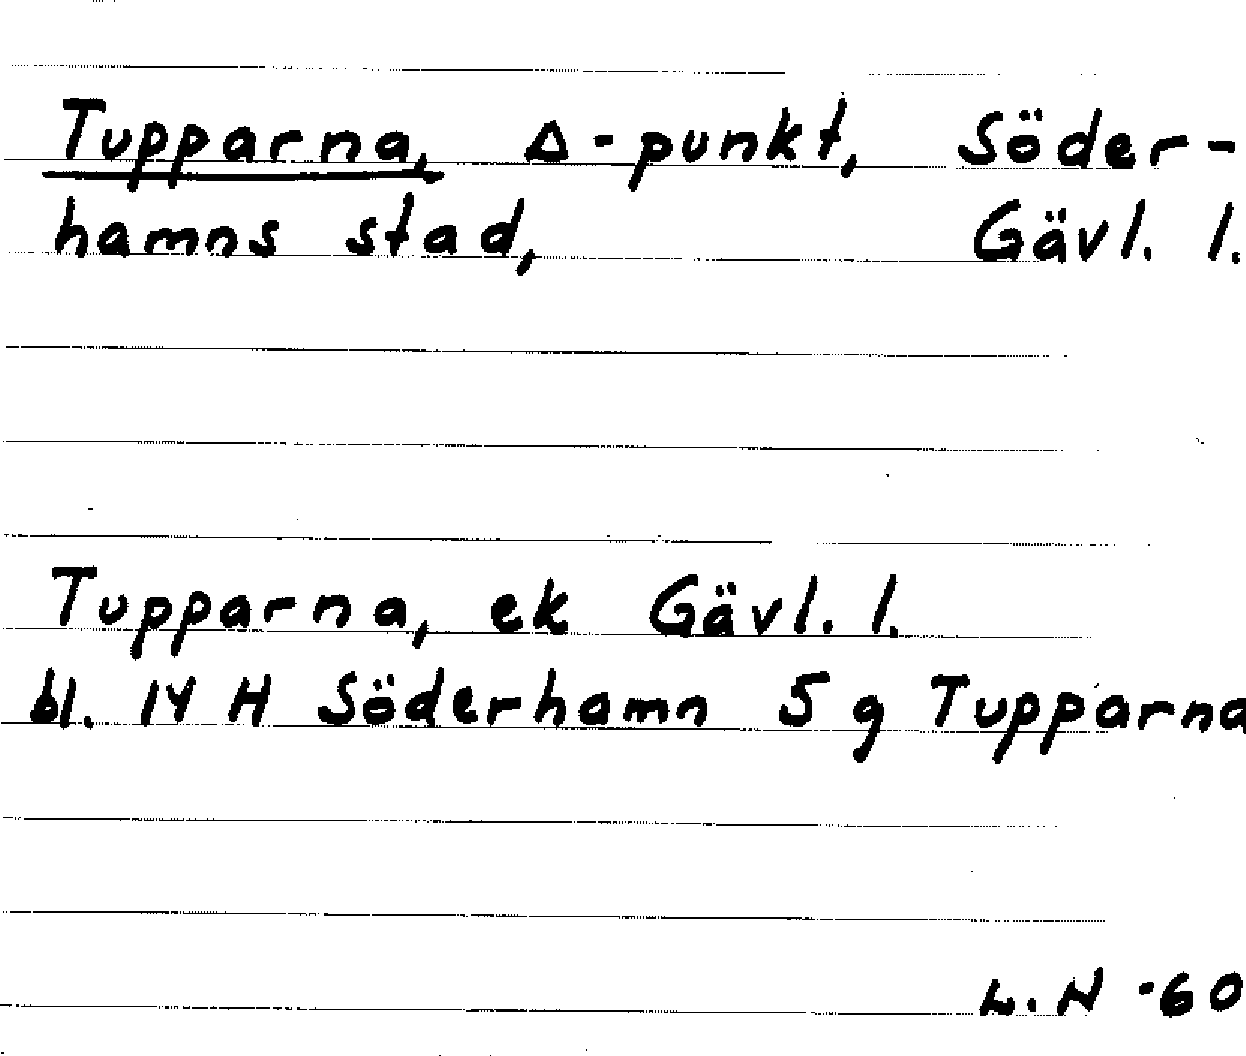 Tupparna, Δ-punkt, Söder-
hamns stad, Gävl. l.
Tupparna, ek Gävl. l.
bl. 14 H Söderhamn 5 g Tupparna
L. N -60